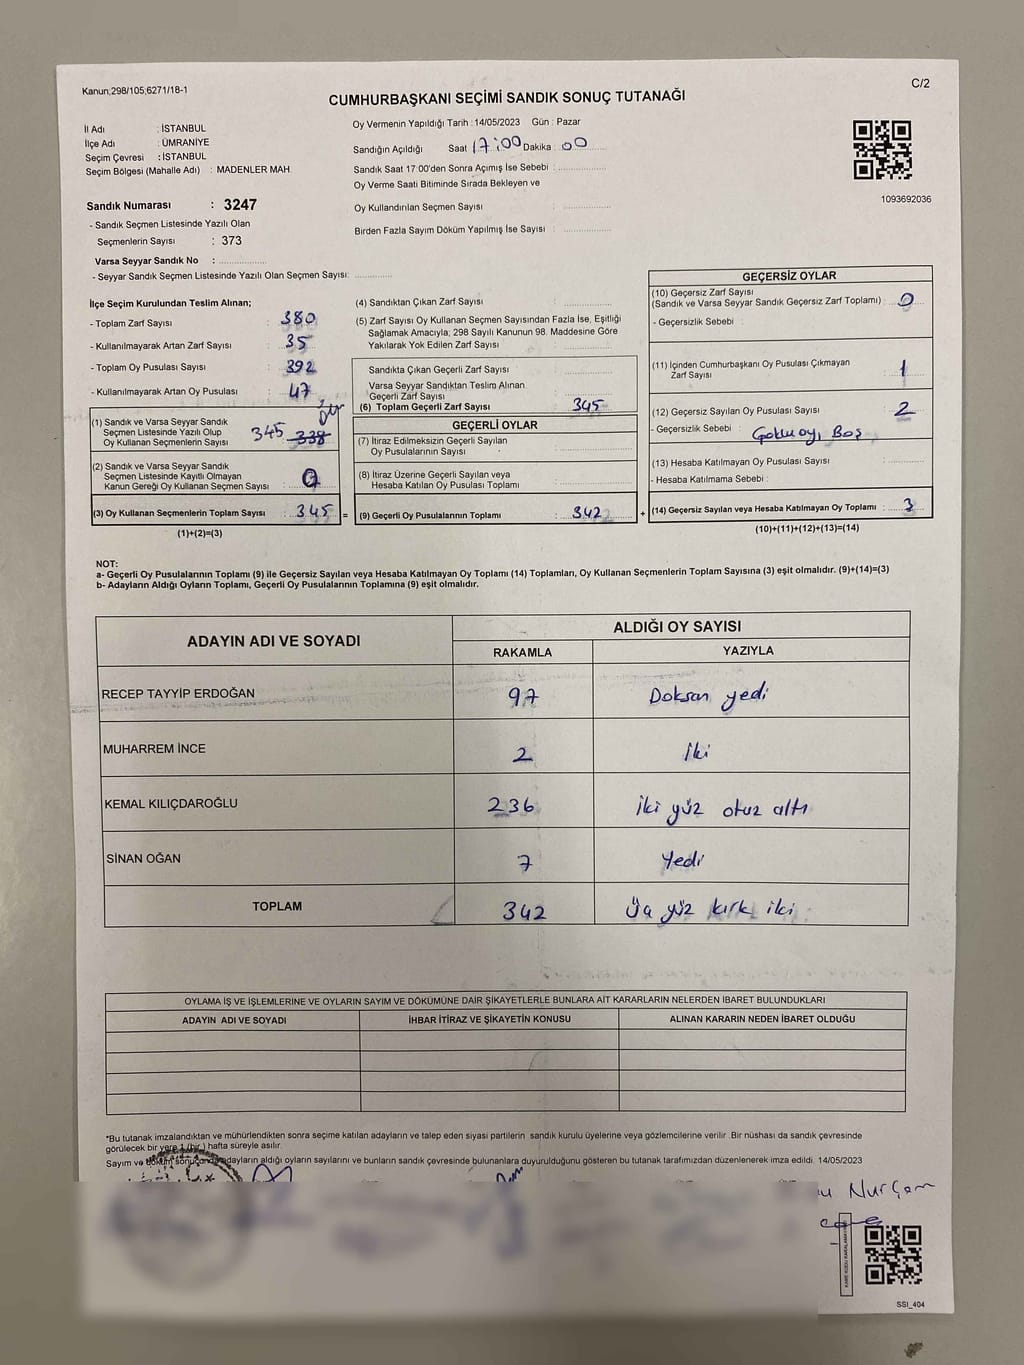 Kanun;298/105;6271/18-1
C/2
CUMHURBAŞKANI SEÇİMİ SANDIK SONUÇ TUTANAĞI
İl Adı : İSTANBUL
İlçe Adı : ÜMRANİYE
Seçim Çevresi : İSTANBUL
Seçim Bölgesi (Mahalle Adı) : MADENLER MAH.
Sandık Numarası : 3247
- Sandık Seçmen Listesinde Yazılı Olan
Seçmenlerin Sayısı : 373
Varsa Seyyar Sandık No :
- Seyyar Sandık Seçmen Listesinde Yazılı Olan Seçmen Sayısı:
Oy Vermenin Yapıldığı Tarih : 14/05/2023 Gün : Pazar
Sandığın Açıldığı Saat 17:00 Dakika : 00
Sandık Saat 17:00'den Sonra Açımış İse Sebebi :
Oy Verme Saati Bitiminde Sırada Bekleyen ve
Oy Kullandırılan Seçmen Sayısı :
Birden Fazla Sayım Döküm Yapılmış İse Sayısı :
1093692036
İlçe Seçim Kurulundan Teslim Alınan;
- Toplam Zarf Sayısı : 380
- Kullanılmayarak Artan Zarf Sayısı : 35
- Toplam Oy Pusulası Sayısı : 392
- Kullanılmayarak Artan Oy Pusulası : 47
(1) Sandık ve Varsa Seyyar Sandık
Seçmen Listesinde Yazılı Olup
Oy Kullanan Seçmenlerin Sayısı 345 338
(2) Sandık ve Varsa Seyyar Sandık
Seçmen Listesinde Kayıtlı Olmayan
Kanun Gereği Oy Kullanan Seçmen Sayısı :
(3) Oy Kullanan Seçmenlerin Toplam Sayısı : 345 =
(1)+(2)=(3)
(4) Sandıktan Çıkan Zarf Sayısı :
(5) Zarf Sayısı Oy Kullanan Seçmen Sayısından Fazla İse, Eşitliği
Sağlamak Amacıyla; 298 Sayılı Kanunun 98. Maddesine Göre
Yakılarak Yok Edilen Zarf Sayısı :
Sandıkta Çıkan Geçerli Zarf Sayısı :
Varsa Seyyar Sandıktan Teslim Alınan
Geçerli Zarf Sayısı :
(6) Toplam Geçerli Zarf Sayısı : 345
GEÇERLİ OYLAR
(7) İtiraz Edilmeksizin Geçerli Sayılan
Oy Pusulalarının Sayısı :
(8) İtiraz Üzerine Geçerli Sayılan veya
Hesaba Katılan Oy Pusulası Toplamı :
(9) Geçerli Oy Pusulalarının Toplamı : 342 +
GEÇERSİZ OYLAR
(10) Geçersiz Zarf Sayısı
(Sandık ve Varsa Seyyar Sandık Geçersiz Zarf Toplamı) : 0
- Geçersizlik Sebebi :
(11) İçinden Cumhurbaşkanı Oy Pusulası Çıkmayan
Zarf Sayısı : 1
(12) Geçersiz Sayılan Oy Pusulası Sayısı : 2
- Geçersizlik Sebebi : Boş
(13) Hesaba Katılmayan Oy Pusulası Sayısı :
- Hesaba Katılmama Sebebi :
(14) Geçersiz Sayılan veya Hesaba Katılmayan Oy Toplamı : 3
(10)+(11)+(12)+(13)=(14)
NOT:
a- Geçerli Oy Pusulalarının Toplamı (9) ile Geçersiz Sayılan veya Hesaba Katılmayan Oy Toplamı (14) Toplamları, Oy Kullanan Seçmenlerin Toplam Sayısına (3) eşit olmalıdır. (9)+(14)=(3)
b- Adayların Aldığı Oyların Toplamı, Geçerli Oy Pusulalarının Toplamına (9) eşit olmalıdır.
ADAYIN ADI VE SOYADI
ALDIĞI OY SAYISI
RAKAMLA YAZIYLA
RECEP TAYYİP ERDOĞAN 97 Doksan yedi
MUHARREM İNCE 2 İki
KEMAL KILIÇDAROĞLU 236 İki yüz otuz altı
SİNAN OĞAN 7 Yedi
TOPLAM 342 Üç yüz kırk iki
OYLAMA İŞ VE İŞLEMLERİNE VE OYLARIN SAYIM VE DÖKÜMÜNE DAİR ŞİKAYETLERLE BUNLARA AİT KARARLARIN NELERDEN İBARET BULUNDUKLARI
ADAYIN ADI VE SOYADI İHBAR İTİRAZ VE ŞİKAYETİN KONUSU ALINAN KARARIN NEDEN İBARET OLDUĞU
*Bu tutanak imzalandıktan ve mühürlendikten sonra seçime katılan adayların ve talep eden siyasi partilerin sandık kurulu üyelerine veya gözlemcilerine verilir. Bir nüshası da sandık çevresinde
görülecek bir yere 1 (bir ) hafta süreyle asılır.
Sayım ve döküm adayların aldığı oyların sayılarını ve bunların sandık çevresinde bulunanlara duyurulduğunu gösteren bu tutanak tarafımızdan düzenlenerek imza edildi. 14/05/2023
SSI_404